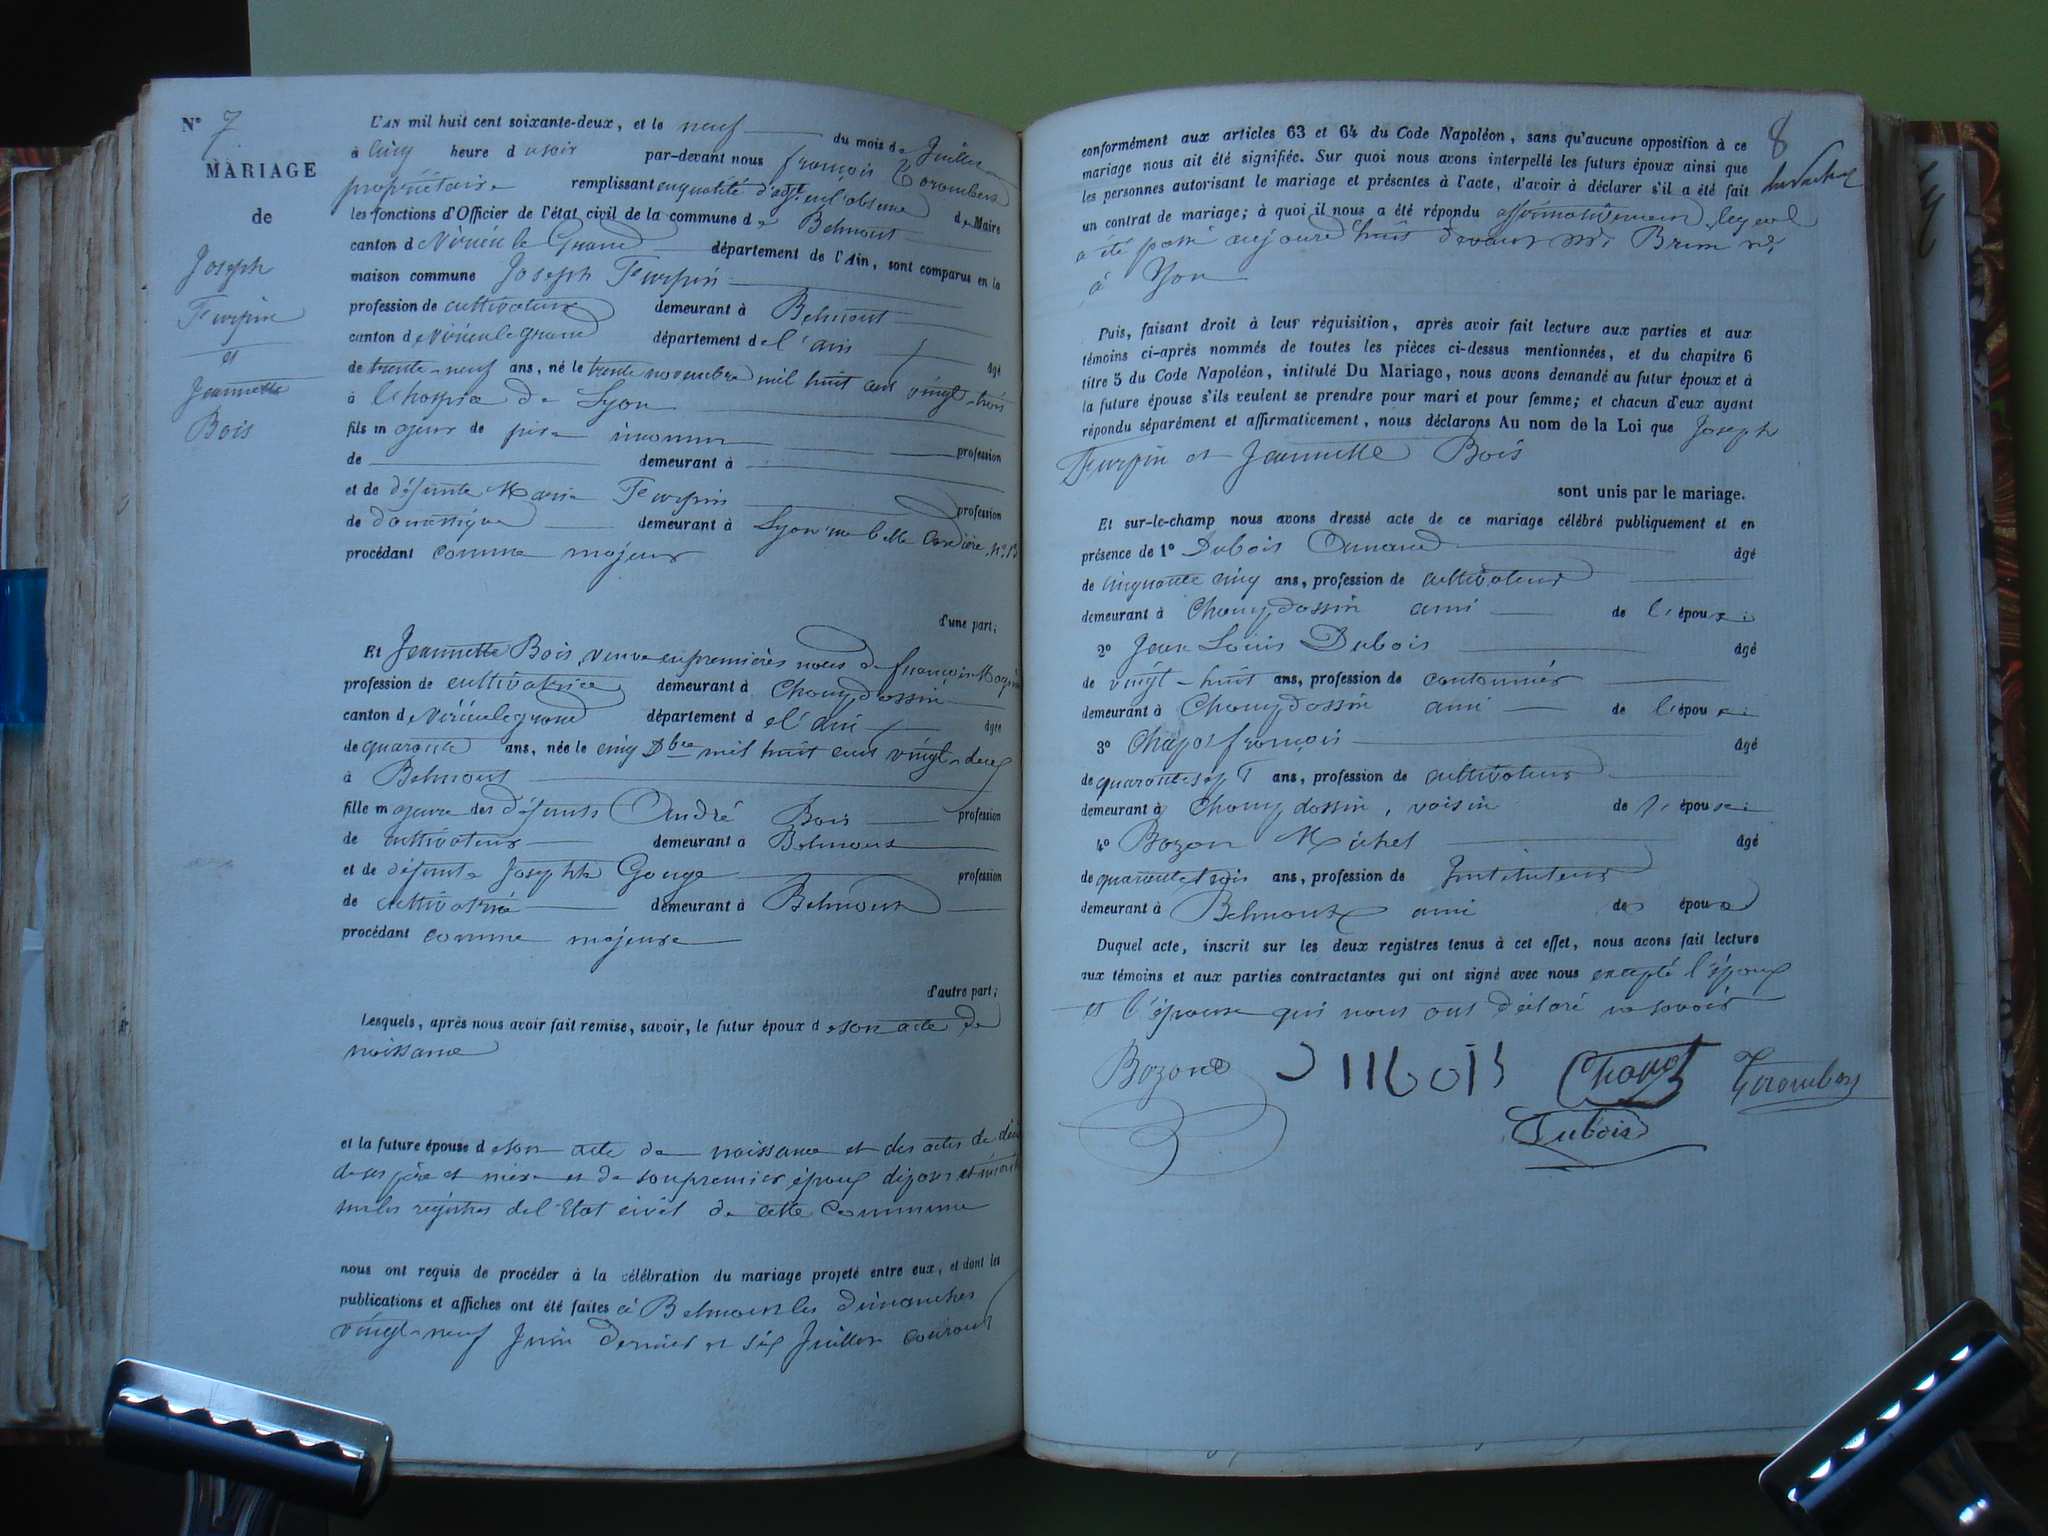 N° 7
MARIAGE
de
Joseph
Turpin
et
Jeannette
Bois
L'AN mil huit cent soixante-deux, et le neuf du mois de Juillet
à cinq heure du soir par-devant nous françois
propriétaire remplissant en qualité d'adjt de Maire
les fonctions d'Officier de l'état civil de la commune de Belmont
canton de Virieu le Grand département de l'Ain, sont comparus en la
maison commune Joseph Turpin
profession de cultivateur demeurant à Belmont
canton de Virieu le grand département de l'ain âgé
de trente-neuf ans, né le trente novembre mil huit cent vingt-trois
à l'hospice de Lyon
fils majeur de père inconnu profession
de demeurant à
et de défunte Marie Turpin profession
de domestique demeurant à Lyon rue belle Cordière, N° 13
procédant comme majeur
d'une part;
Et Jeannette Bois, veuve en premières noces de françois
profession de cultivatrice demeurant à
canton de Virieu le grand département de l'ain âgée
de quarante ans, née le cinq Dbre mil huit cent vingt-deux
à Belmont
fille majeure des défunts André Bois profession
de cultivateur demeurant à Belmont
et de défunte Josephte Gouge profession
de cultivatrice demeurant à Belmont
procédant comme majeure
d'autre part;
Lesquels, après nous avoir fait remise, savoir, le futur époux de son acte de
naissance
et la future épouse de son acte de naissance et des actes de décès
de ses père et mère et de son premier époux déposés et inscrits
sur les régistres de l'Etat civil de cette Commune
nous ont requis de procéder à la célébration du mariage projeté entre eux, et dont les
publications et affiches ont été faites à Belmont les dimanches
vingt-neuf Juin dernier et six Juillet courant
8
conformément aux articles 63 et 64 du Code Napoléon, sans qu'aucune opposition à ce
mariage nous ait été signifiée. Sur quoi nous avons interpellé les futurs époux ainsi que
les personnes autorisant le mariage et présentes à l'acte, d'avoir à déclarer s'il a été fait
un contrat de mariage; à quoi il nous a été répondu affirmativement lequel
a été passé aujourd'huit devant Me Brun nre
à Yon
Puis, faisant droit à leur réquisition, après avoir fait lecture aux parties et aux
témoins ci-après nommés de toutes les pièces ci-dessus mentionnées, et du chapitre 6
titre 5 du Code Napoléon, intitulé Du Mariage, nous avons demandé au futur époux et à
la future épouse s'ils veulent se prendre pour mari et pour femme; et chacun d'eux ayant
répondu séparément et affirmativement, nous déclarons Au nom de la Loi que Joseph
Turpin et Jeannette Bois
sont unis par le mariage.
Et sur-le-champ nous avons dressé acte de ce mariage célébré publiquement et en
présence de 1° Dubois âgé
de cinquante cinq ans, profession de cultivateur
demeurant à ami de l'épouse
2° Jean Louis Dubois âgé
de vingt-huit ans, profession de cantonnier
demeurant à ami de l'épouse
3° Chapot françois âgé
de quarante sept ans, profession de cultivateur
demeurant à voisin de l'épouse
4° Bozon Michel âgé
de quarante trois ans, profession de Instituteur
demeurant à Belmont ami des époux
Duquel acte, inscrit sur les deux registres tenus à cet effet, nous avons fait lecture
aux témoins et aux parties contractantes qui ont signé avec nous excepté l'époux
et l'épouse qui nous ont déclaré ne savoir
Bozon Dubois Chapot
Dubois